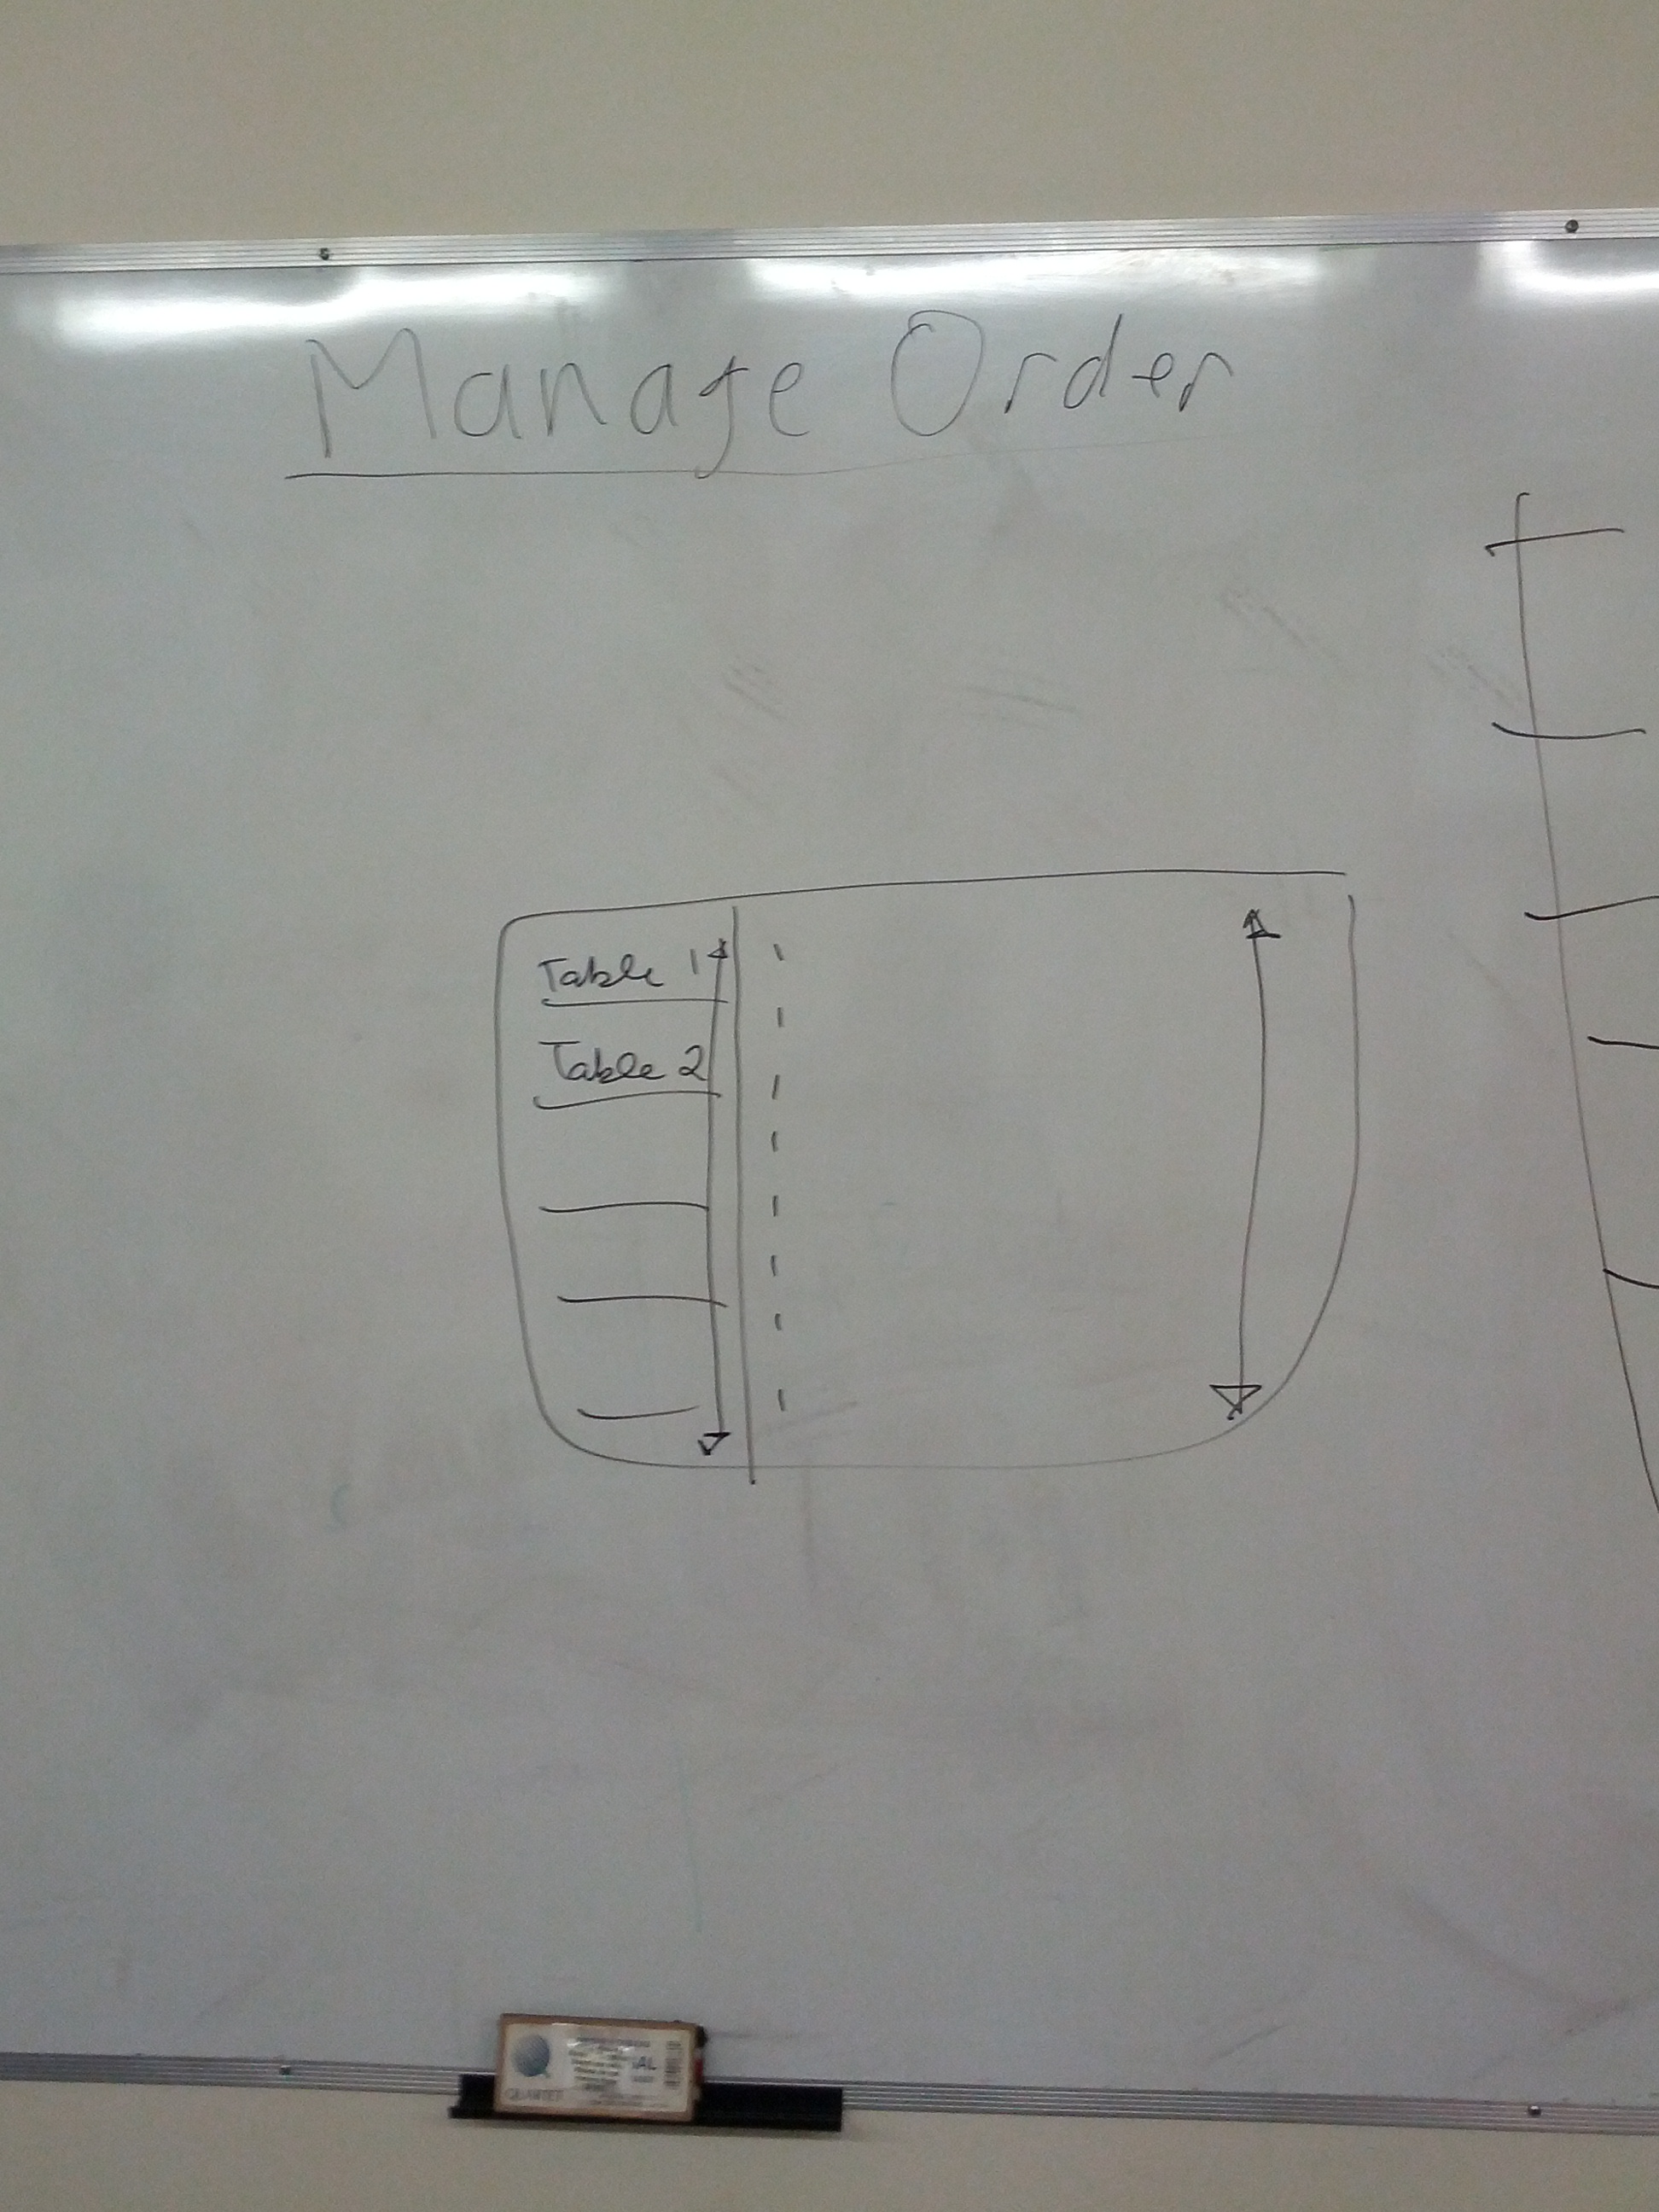 Manage Order
Table 1
Table 2
QUARTET